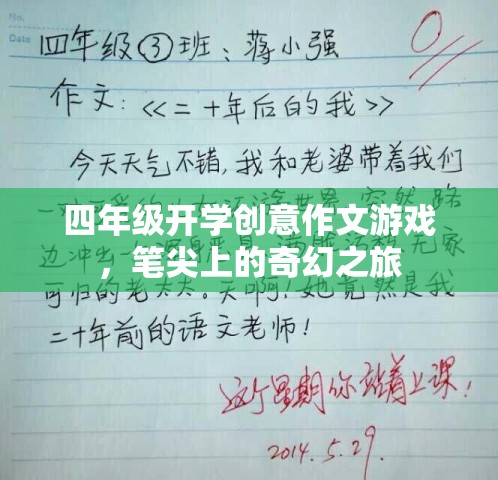 No.
Date
四年级③班:蒋小强
0
作文:<<二十年后的我>>
今天天气不错,我和老婆带着我们
四年级开学创意作文游戏
,笔尖上的奇幻之旅
可归的老太太。天啊!她竟然是我
二十年前的语文老师!
这个星期你站着上课!
2014.5.29.